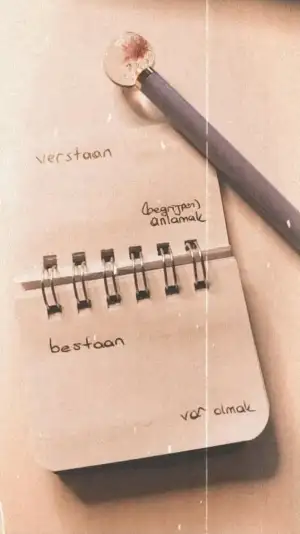 verstaan
(begrijpen)
anlamak
bestaan
var olmak